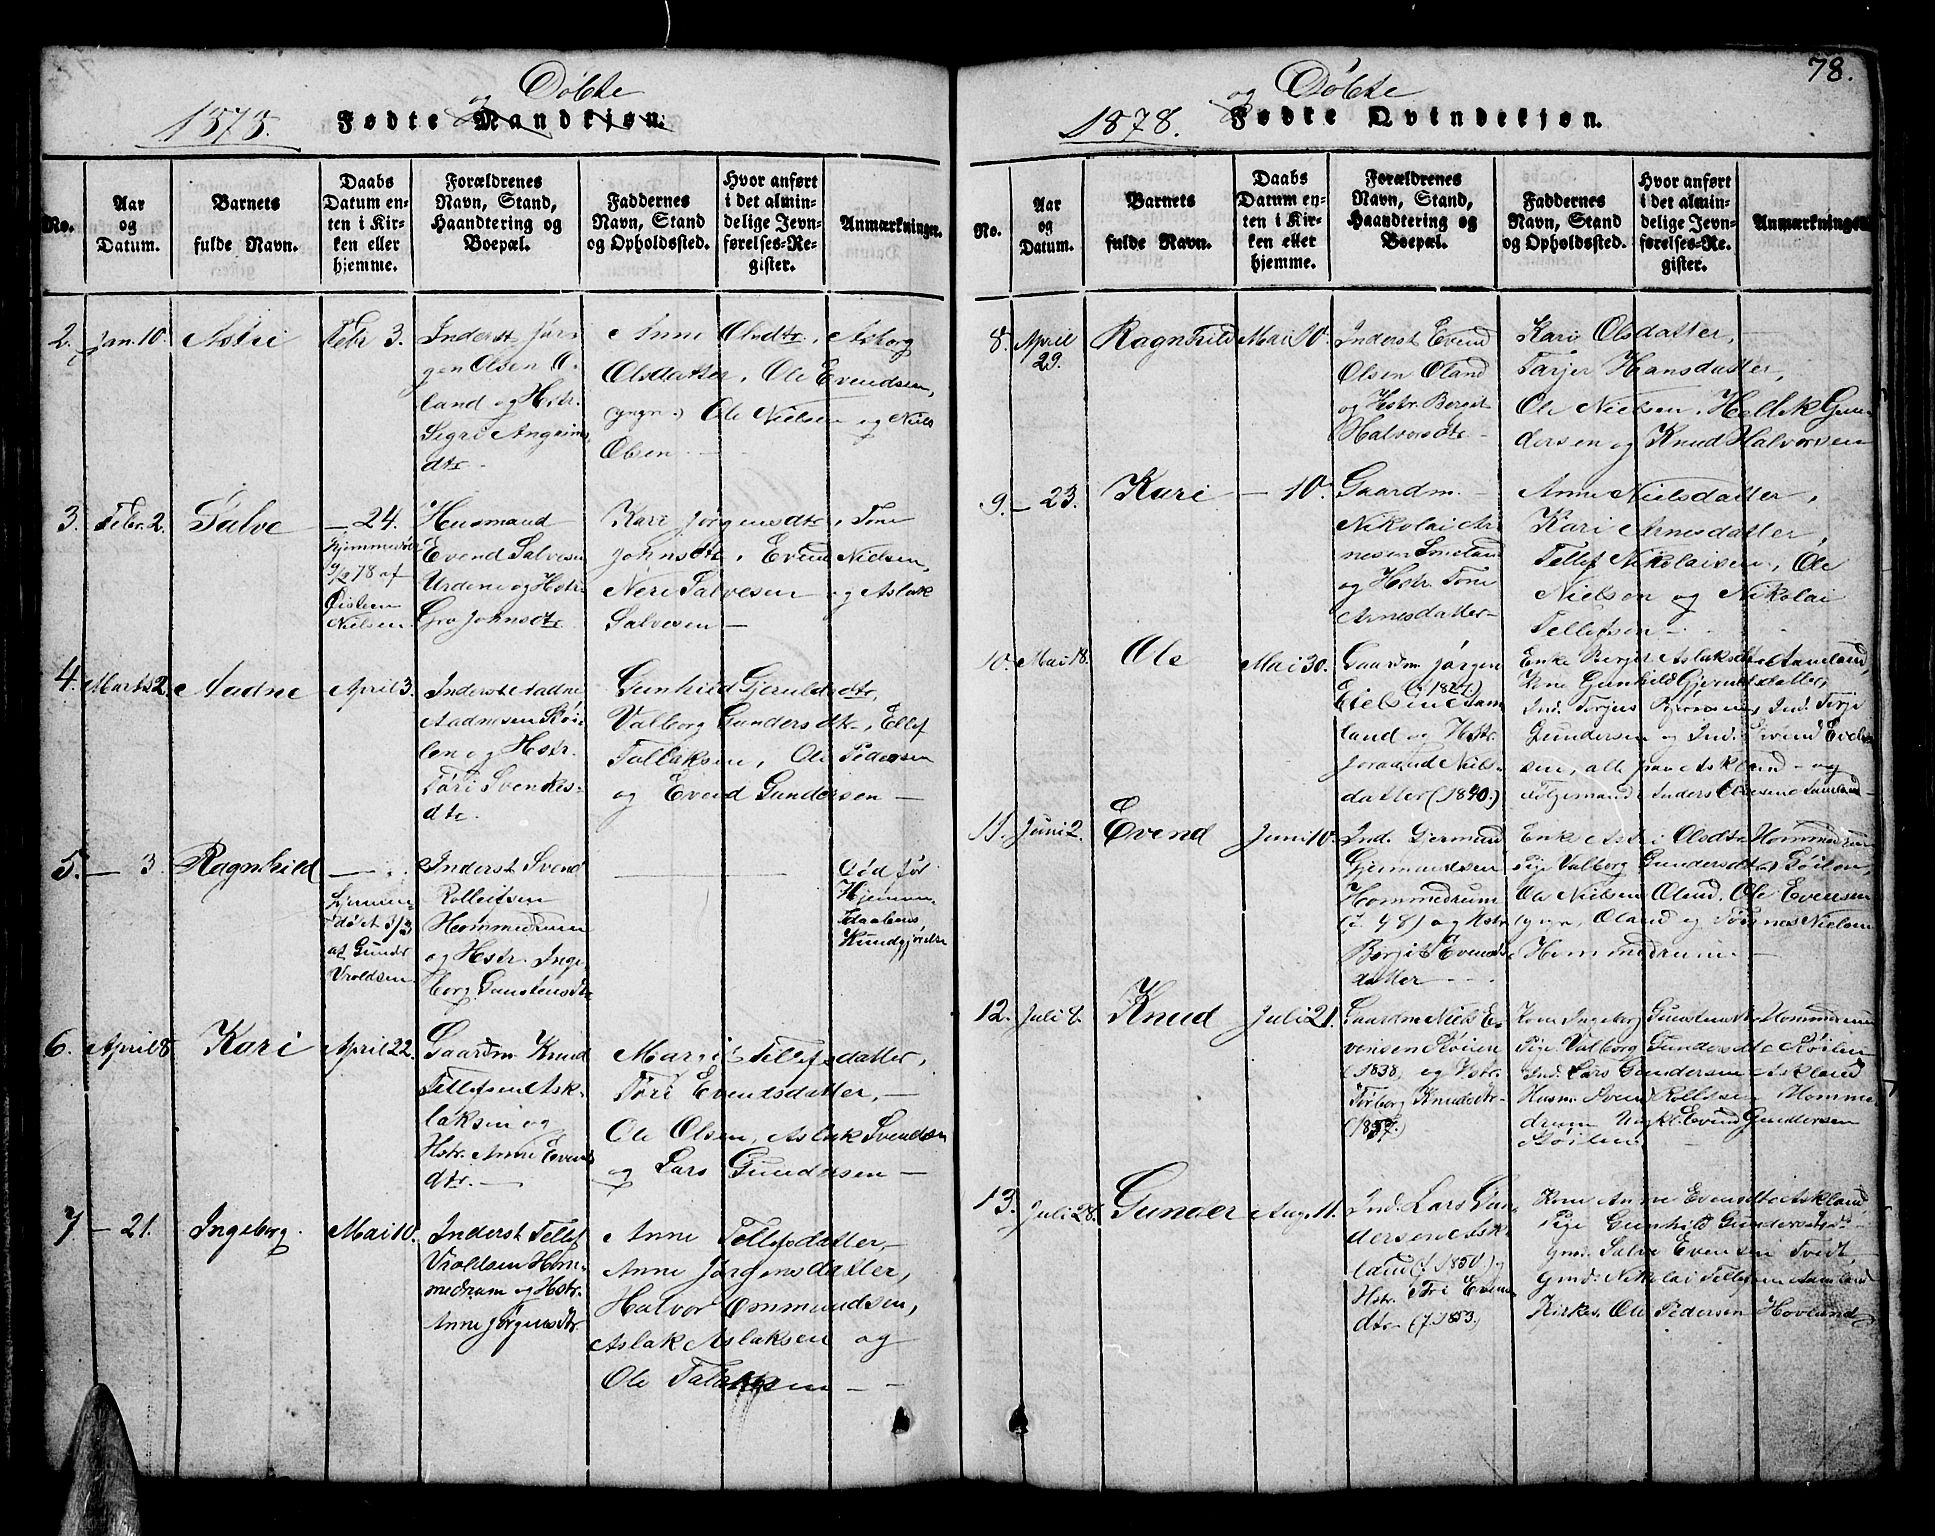 78.
1878.
Fødte og Døbte Mandkjøn.
No.
Aar og Datum.
Barnets fulde Navn.
Daabs Datum enten i Kirken eller hjemme.
Forældrenes Navn, Stand, Haandtering og Boepæl.
Faddernes Navn, Stand og Opholdssted.
Hvor anført i det almindelige Jevnførelses-Register.
Anmærkninger.
2. Jan. 10. Astri Febr 3.
Inderst Jørgen Olsen Oland og Hstr. Sigri Angrims dtr.
Anne Olsdtr., Asborg
Olsdatter, Ole Evendsen,
(yngr.) Ole Nielsen og Niels
Olsen.
3. Febr. 2. Salve — 24.
Hjemmedøbt 9/2 78 af Øisten Nielsen
Husmand
Evend Salvesen
Urdene og Hstr.
Gro Johnsdtr.
Kari Jørgensdtr, Tone
Johnsdtr, Evend Nielsen,
Neri Salvesen og Aslak
Salvesen —
4. Marts 2. Aadne April 3.
Inderst Aadne
Aadnesen Skøi
len og Hstr.
Tøri Svenkes-
dtr.
Gunhild Gjeruldsdtr,
Valborg Gundersdtr, Ellef
Tallaksen, Ole Pedersen
og Evend Gundersen —
5. — 3. Ragnhild —
Hjemmedøbt 3/3
af Gunder
Vroldsen
Inderst Svend
Rolleivsen
Hommedrum
og Hstr. Inge
borg Gunstensdtr
Død før
Hjemme
daabens
Kundgjørelse
6. April 8. Kari April 22.
Gaardm Knud
Tellefsen Ask-
laksen og
Hstr. Anne Evends
dtr. —
Margit Tellefsdatter,
Tøri Evendsdatter, —
Ole Olsen, Aslak Svendsen
og Lars Gundersen —
7 — 21. Ingeborg. Mai 10.
Inderst Tellef
Vroldsen Hom-
medrum og Hstr.
Anne Jørgensdtr.
Anne Tellefsdatter, —
Anne Jørgensdatter,
Halvor Ommundsen,
Aslak Aslaksen og
Ole Talaksen — -
1878.
Fødte og Døbte Qvindekjøn.
No.
Aar og Datum.
Barnets fulde Navn.
Daabs Datum enten i Kirken eller hjemme.
Forældrenes Navn, Stand, Haandtering og Boepæl.
Faddernes Navn, Stand og Opholdssted.
Hvor anført i det almindelige Jevnførelses-Register.
Anmærkninger
8. April 29. Ragnhild Mai 10.
Inderst Evend
Olsen Oland
og Hstr. Bergit
Halvorsdtr —
Kari Olsdatter,
Tarjer Hansdatter,
Ole Nielsen, Hellek Gun
dersen og Knud Halvorsen
9. — 23. Kari — 10.
Gaardm. —
Nikolai Ar
nesen Smeland
og Hstr. Tone
Arnesdatter —
Anne Nielsdatter,
Kari Arnesdatter,
Tellef Nikolaisen, Ole
Nielsen og Nikolai
Tellefsen —
10. Mai 18. Ole Mai 30.
Gaardm Jørgen
Eielsen Aam
land og Hstr.
Joraand Niels-
datter (1840.)
Enke Berjit Aslaksdtr Aamland,
Kone Gunhild Gjeruldsdatter,
Ind. Terje
Gundersen og Ind. Evend
sen, alle fra Askland — og
11. Juni 2. Evend Juni 10.
Ind. Gjermund
Gjermundsen
Hommedrum
(f. 48) og Hstr
Berjit Evends
datter — -
Enke Astri Olsdtr Hommedrum
Pige Valborg Gundersdtr Skøilen,
Ole Nielsen Oland, Ole Evensen
yngr, Oland og Nielsen
Hommedrum —
12. Juli 8. Knud Juli 21.
Gaardm Niels E
vensen Skøien
(1838) og Hstr.
Torborg Knudsdtr —
(1837.)
Kone Ingeborg Gunstensdtr Hommedrum
Pige Valborg Gundersdtr Skøilen
Ind. Lars Gundersen Askland
Husm. Svend Rolleivsen Homme
drum Ungkl. Evend Gundersen
Skøilen
13. Juli 28. Gunder Aug. 11.
Ind. Lars Gun
dersen Ask
land (f. 1850.) og
Hstr. Tøri Evens
dtr (f. 1853.)
Kone Anne Evensdtr Askland
Pige Gunhild Gundersdtr —
Gmd. Salve Evensen Tveit,
Gmd. Nikolai Tellefsen Aamland
Kirkes. Ole Pedersen Hovland